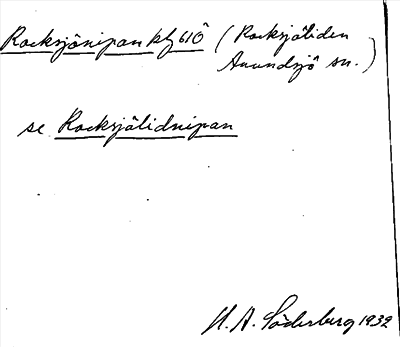 Rocksjönipan klj 61Ö (Rocksjöliden
Anundsjö sn.)
se Rocksjölidnipan
H. A. Söderberg 1932